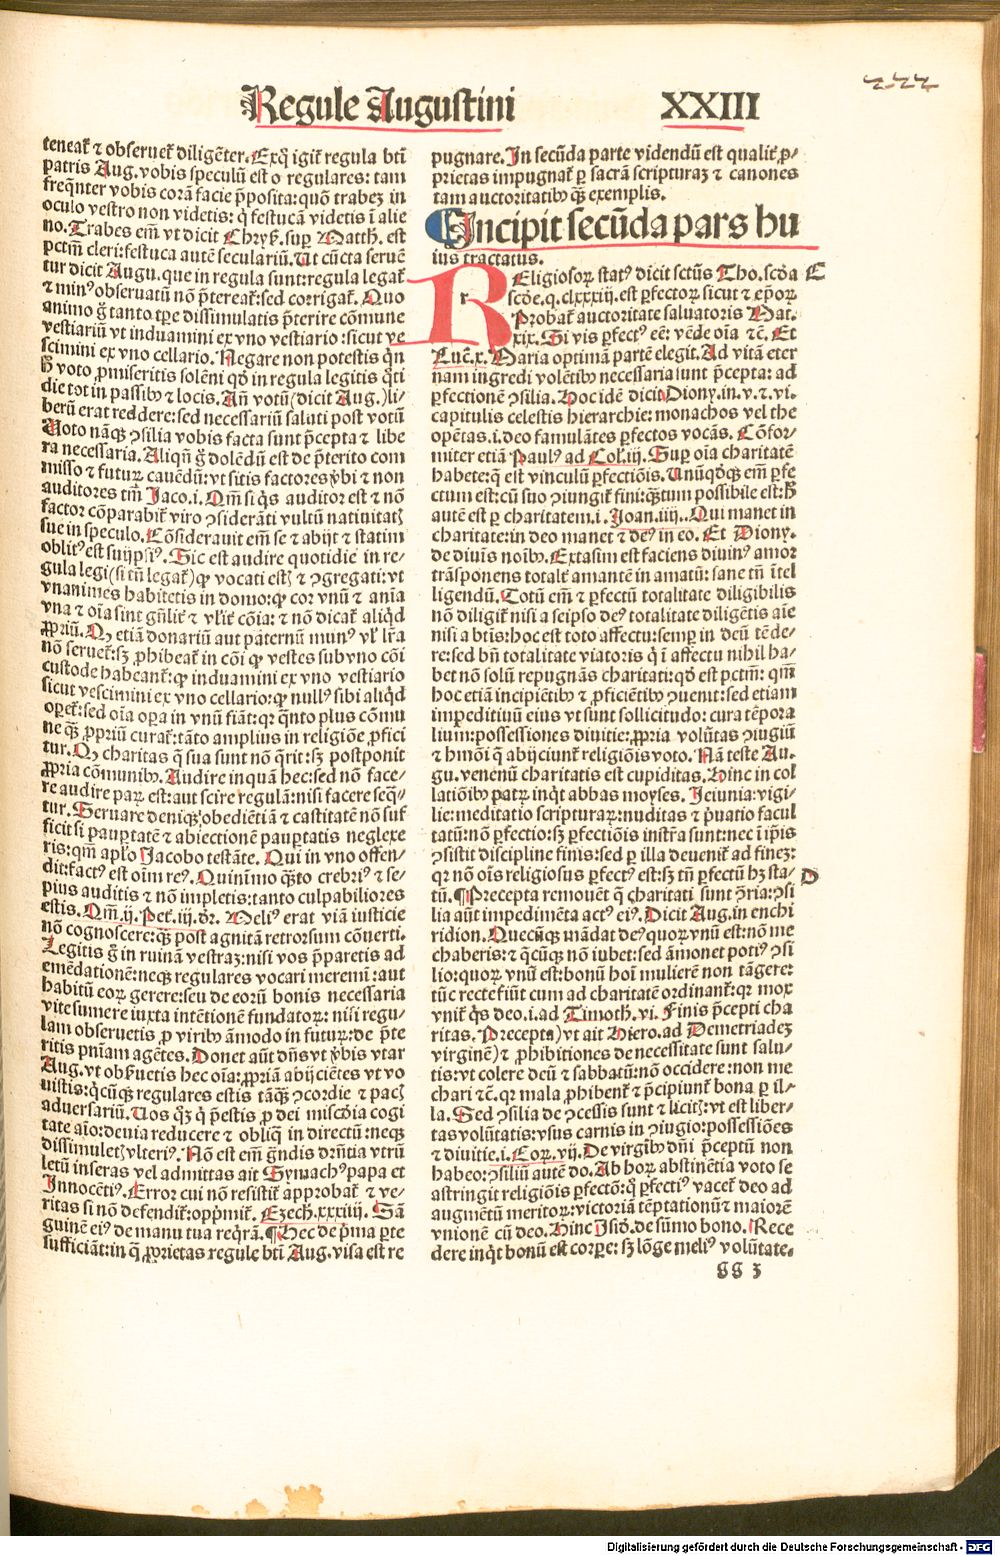 Regule Augustini XXIII
teneat̃ ⁊ obseruet̃ diligẽter. Exq̃ igit̃ regula btĩ
patris Aug. vobis speculũ est o regulares: tam
freq̃nter vobis corã facie p̃posita: quõ trabeʒ in
oculo vestro non videtis: q̃ festucã videtis ĩ alie
no. Trabes em̃ vt dicit Chrys̃. sup̱ Matth̃. est
pctm̃ cleri: festuca autẽ seculariũ. Ut cũcta seruẽ
tur dicit Augu. que in regula sunt: regula legat̃
⁊ minꝰ obseruatũ nõ p̃tereat̃: sed corrigat̃. Quo
animo g̃ tanto tp̱e dissimulatis p̃terire cõmune
vestiariũ vt induamini ex vno vestiario: sicut ve
scimini ex vno cellario. Negare non potestis q̃n
h̃ voto ꝓmiseritis solẽni qõ in regula legitis q̃ti
die tot in passibꝰ ⁊ locis. Añ votũ (dicit Aug.) li-
berũ erat reddere: sed necessariũ saluti post votũ
Uoto nãqꝫ ꝯsilia vobis facta sunt p̃cepta ⁊ libe
ra necessaria. Aliqñ g̃ dolẽdũ est de p̃terito com
misso ⁊ futuꝝ cauẽdũ: vt sitis factores v̾bi ⁊ non
auditores tm̃ Jaco. i. Qm̃ si q̃s auditor est ⁊ nõ
factor cõparabit̃ viro ꝯsiderãti vultũ natiuitatꝭ
sue in speculo. Cõsiderauit em̃ se ⁊ abijt ⁊ statim
oblitꝰ est suijpsiꝰ. Sic est audire quotidie in re-
gula legi (si tñ legat̃) qꝙ vocati estꝭ ⁊ ꝯgregati: vt
vnanimes habitetis in domo: qꝙ cor vnũ ⁊ anĩa
vna ⁊ oĩa sint gñlit̃ ⁊ vl̃it̃ cõia: ⁊ nõ dicat̃ aliqd̃
ꝓpriũ. Qꝫ etiã donariũ aut paternũ munꝰ vl̃ lr̃a
nõ seruet̃: sꝫ ꝓhibeat̃ in cõi qꝙ vestes sub vno cõi
custode habeant̃: qꝙ induamini ex vno vestiario
sicut vescimini ex vno cellario: qꝙ nullꝰ sibi aliqd̃
oꝑet̃: sed oĩa oꝑa in vnũ fiãt: qꝛ q̃nto plus cõmu
ne qꝫ ꝓpriũ curat̃: tãto amplius in religiõe ꝓfici
tur. Qꝫ charitas q̃ sua sunt nõ q̃rit: sꝫ postponit
ꝓpria cõmunibꝰ. Audire inquã hec: sed nõ face-
re audire paꝝ est: aut scire regulã: nisi facere seq̃-
tur. Seruare deniqꝫ obediẽtiã ⁊ castitatẽ nõ suf
ficit si pauꝑtatẽ ⁊ abiectionẽ pauꝑtatis neglexe
ris: qm̃ apl̃o Jacobo testãte. Qui in vno offen-
dit: factꝰ est oĩm reꝰ. Quinĩmo q̃ꝫto crebriꝰ ⁊ se-
pius auditis ⁊ nõ impletis: tanto culpabiliores
estis. Qm̃. ij. Pet̃. iij. dr̃. Meliꝰ erat viã iusticie
nõ cognoscere: qꝫ post agnitã retrorsum cõuerti.
Legitis g̃ in ruinã vestraʒ: nisi vos p̃paretis ad
emẽdationẽ: neqꝫ regulares vocari meremĩ: aut
habitũ eoꝝ gerere: seu de eorũ bonis necessaria
vite sumere iuxta intẽtionẽ fundatoꝝ: nisi regu-
lam obseruetis ꝓ viribꝰ ãmodo in futuꝝ: de p̃te
ritis pñiam agẽtes. Donet aũt dñs vt v̾bis vtar
Aug. vt obs̃uetis hec oĩa: ꝓpriã abijciẽtes vt vo
uistis: q̃cũqꝫ regulares estis tãqꝫ ꝯcordie ⁊ pacꝭ
aduersariũ. Uos qꝫ q̃ p̃estis ꝓ dei miscd̃ia cogi
tate aĩo: deuia reducere ⁊ obliq̃ in directũ: neqꝫ
dissimuletꝭ vlteriꝰ. Nõ est em̃ g̃ndis dr̃ntia vtrũ
letũ inseras vel admittas ait Symachꝰ papa et
Innocẽtiꝰ. Error cui nõ resistit̃ approbat̃ ⁊ ve-
ritas si nõ defendit̃: opp̃mit̃. Ezech̃. xxxiij. Sã
guinẽ eiꝰ de manu tua req̃rã. ¶ Hec de p̃ma ꝑte
sufficiãt: in q̃ ꝓprietas regule btĩ Aug. visa est re
pugnare. In secũda parte videndũ est qualit̃ ꝓ-
prietas impugnat̃ ꝑ sacrã scripturaʒ ⁊ canones
tam auctoritatibꝰ qꝫ exemplis.
Incipit secũda pars hu
ius tractatus.
REligiosoꝝ statꝰ dicit sctũs Tho. scd̃a C
scd̃e. q. clxxxiij. est ꝑfectoꝝ sicut ⁊ ep̃oꝝ
Probat̃ auctoritate saluatoris Mat.
xix. Si vis ꝑfectꝰ eẽ: vẽde oĩa ⁊c̃. Et
Luc̃. x. Maria optimã partẽ elegit. Ad vitã eter
nam ingredi volẽtibꝰ necessaria sunt p̃cepta: ad
ꝑfectionẽ ꝯsilia. Hoc idẽ dicit Diony. in. v. ⁊. vi.
capitulis celestis hierarchie: monachos vel the
opẽtas. i. deo famulãtes ꝑfectos vocãs. Cõfor-
miter etiã Paulꝰ ad Col̃. iij. Suꝑ oĩa charitatẽ
habete: q̃ est vinculũ ꝑfectiõis. Unũq̃dqꝫ em̃ ꝑfe
ctum est: cũ suo ꝯiungit̃ fini: q̃ꝫtum possibile est: h̃
autẽ est ꝑ charitatem. i. Joan. iiij. Qui manet in
charitate: in deo manet ⁊ deꝰ in eo. Et Diony.
de diuĩs noĩbꝰ. Extasim est faciens diuinꝰ amor
trãsponens totalit̃ amantẽ in amatũ: sane tñ ĩtel
ligendũ. Totũ em̃ ⁊ ꝑfectũ totalitate diligibilis
nõ diligit̃ nisi a seipso deꝰ totalitate diligẽtis aĩe
nisi a btĩs: hoc est toto affectu: semꝑ in deũ tẽde-
re: sed bñ totalitate viatoris q̃ ĩ affectu nihil ha-
bet nõ solũ repugnãs charitati: qd̃ est pctm̃: qm̃
hoc etiã incipiẽtibꝰ ⁊ ꝓficiẽtibꝰ ꝯuenit: sed etiam
impeditiuũ eius vt sunt sollicitudo: cura tẽpora
lium: possessiones diuitie: ꝓpria volũtas ꝯiugiũ
⁊ hmõi q̃ abijciunt̃ religiõis voto. Nã teste Au-
gu. venenũ charitatis est cupiditas. Hinc in col
latiõibꝰ patꝝ inq̃t abbas moyses. Jeiunia: vigi-
lie: meditatio scripturaꝝ: nuditas ⁊ p̃uatio facul
tatũ: nõ ꝑfectio: sꝫ ꝑfectiõis instr̃a sunt: nec ĩ ip̃is
ꝯsistit discipline finis: sed ꝑ illa deuenit̃ ad fineʒ:
qꝛ nõ oĩs religiosus ꝑfectꝰ est: sꝫ tñ ꝑfectũ hꝫ sta- D
tũ. ¶ Precepta remouẽt q̃ charitati sunt ꝯ̃ria: ꝯsi
lia aũt impedimẽta actꝰ eiꝰ. Dicit Aug. in enchi
ridion. Quecũqꝫ mãdat deꝰ quoꝝ vnũ est: nõ me
chaberis: ⁊ q̃cũqꝫ nõ iubet: sed ãmonet potiꝰ ꝯsi
lio: quoꝝ vnũ est: bonũ hoĩ mulierẽ non tãgere:
tũc recte fiũt cum ad charitatẽ ordinant̃: qꝛ mox
vnit̃ q̃s deo. i. ad Timoth̃. vi. Finis p̃cepti cha
ritas. Precepta) vt ait Hiero. ad Demetriadeʒ
virginẽ) ⁊ ꝓhibitiones de necessitate sunt salu-
tis: vt colere deũ ⁊ sabbatũ: nõ occidere: non me
chari ⁊c̃. qꝛ mala ꝓhibent̃ ⁊ p̃cipiunt̃ bona ꝑ il-
la. Sed ꝯsilia de ꝯcessis sunt ⁊ licitꝭ: vt est liber-
tas volũtatis: vsus carnis in ꝯiugio: possessiões
⁊ diuitie. i. Coꝝ. vij. De virgĩbꝰ dñi p̃ceptũ non
habeo: ꝯsiliũ autẽ do. Ab hoꝝ abstinẽtia voto se
astringit religiõis ꝑfectõ: q̃ ꝑfectiꝰ vacet̃ deo ad
augmẽtũ meritoꝝ: victoriã tẽptationũ ⁊ maiorẽ
vnionẽ cũ deo. Hinc Isid. de sũmo bono. Rece
dere inq̃t bonũ est corꝑe: sꝫ lõge meliꝰ volũtate.
gg 3
Digitalisierung gefördert durch die Deutsche Forschungsgemeinschaft - DFG